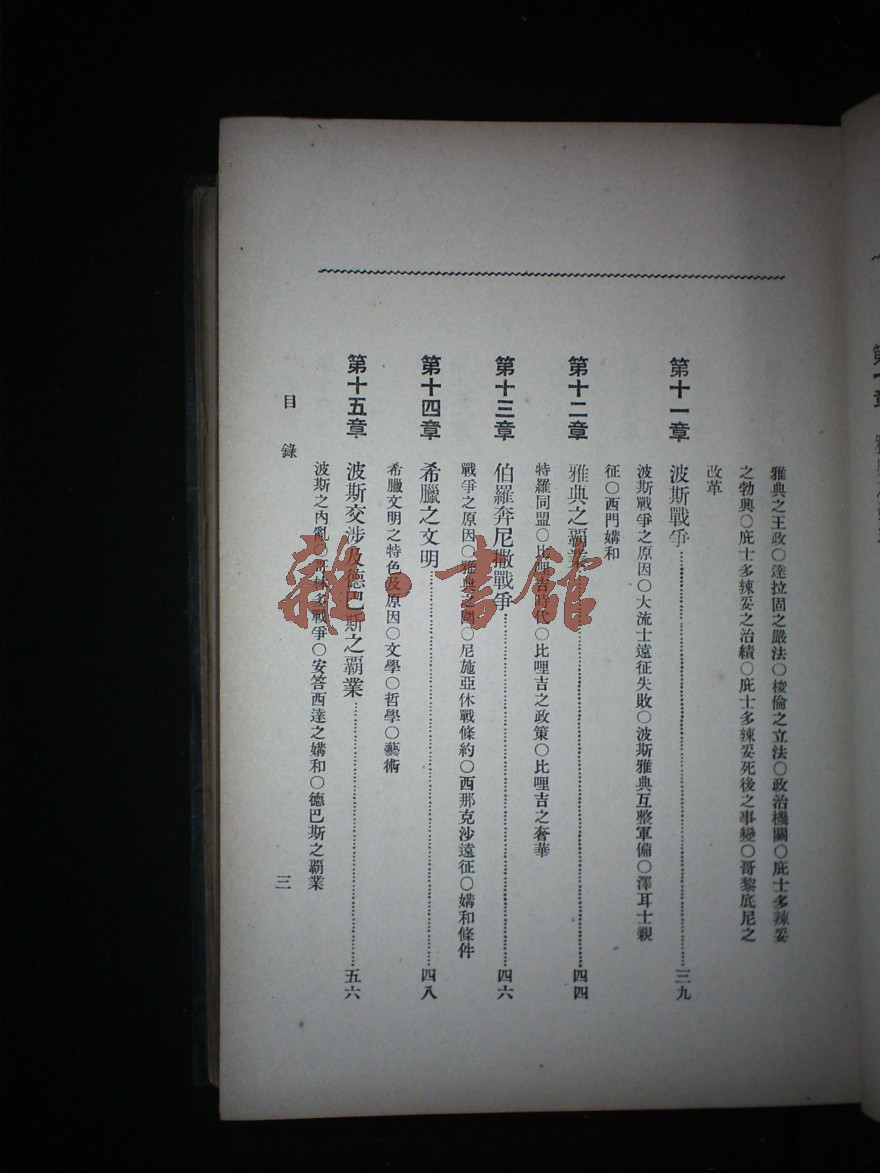 雅典之王政○達拉固之嚴法○梭倫之立法○政治機關○庇士多辣妥
之勃興○庇士多辣妥之治績○庇士多辣妥死後之事變○哥黎底尼之
改革
第十一章 波斯戰爭……三九
波斯戰爭之原因○大流士遠征失敗○波斯雅典互整軍備○澤耳士親
征○西門媾和
第十二章 雅典之霸業……四四
特羅同盟○比哩吉時代○比哩吉之政策○比哩吉之奢華
第十三章 伯羅奔尼撒戰爭……四六
戰爭之原因○雅典之○尼施亞休戰條約○西那克沙遠征○媾和條件
第十四章 希臘之文明……四八
希臘文明之特色及原因○文學○哲學○藝術
第十五章 波斯交涉及德巴斯之霸業……五六
波斯之內亂○多戰爭○安答西達之媾和○德巴斯之霸業
目錄
三
雜·書館